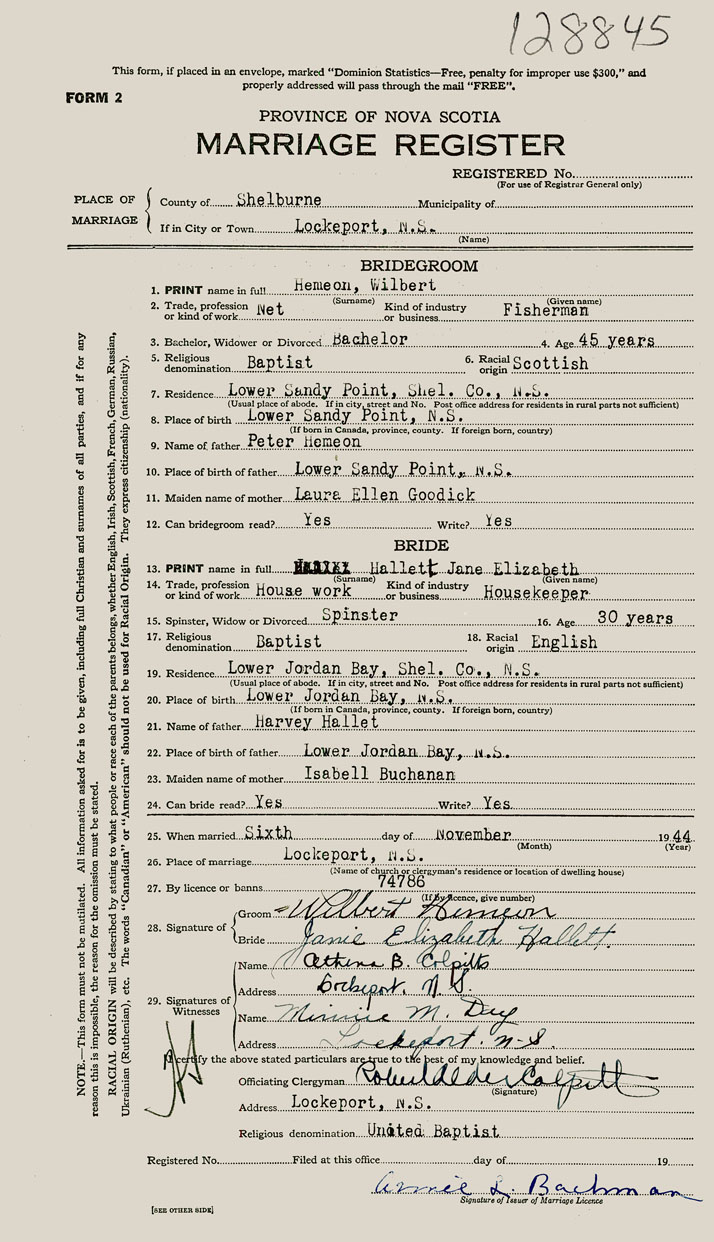 128845
This form, if placed in an envelope, marked “Dominion Statistics—Free, penalty for improper use $300,” and
properly addressed will pass through the mail “FREE”.
FORM 2
PROVINCE OF NOVA SCOTIA
MARRIAGE REGISTER
REGISTERED No.
(For use of Registrar General only)
PLACE OF MARRIAGE
County of Shelburne Municipality of
If in City or Town Lockeport, N.S.
(Name)
BRIDEGROOM
1. PRINT name in full Hemeon, Wilbert
(Surname) (Given name)
2. Trade, profession or kind of work Net Kind of industry or business Fisherman
3. Bachelor, Widower or Divorced Bachelor 4. Age 45 years
5. Religious denomination Baptist 6. Racial origin Scottish
7. Residence Lower Sandy Point, Shel. Co., N.S.
(Usual place of abode. If in city, street and No. Post office address for residents in rural parts not sufficient)
8. Place of birth Lower Sandy Point, N.S.
(If born in Canada, province, county. If foreign born, country)
9. Name of father Peter Hemeon
10. Place of birth of father Lower Sandy Point, N.S.
11. Maiden name of mother Laura Ellen Goodick
12. Can bridegroom read? Yes Write? Yes
BRIDE
13. PRINT name in full Hallett Jane Elizabeth
(Surname) (Given name)
14. Trade, profession or kind of work House work Kind of industry or business Housekeeper
15. Spinster, Widow or Divorced Spinster 16. Age 30 years
17. Religious denomination Baptist 18. Racial origin English
19. Residence Lower Jordan Bay, Shel. Co., N.S.
(Usual place of abode. If in city, street and No. Post office address for residents in rural parts not sufficient)
20. Place of birth Lower Jordan Bay, N.S.
(If born in Canada, province, county. If foreign born, country)
21. Name of father Harvey Hallet
22. Place of birth of father Lower Jordan Bay, N.S.
23. Maiden name of mother Isabell Buchanan
24. Can bride read? Yes Write? Yes
25. When married Sixth day of November 1944
(Month) (Year)
26. Place of marriage Lockeport, N.S.
(Name of church or clergyman's residence or location of dwelling house)
27. By licence or banns 74786
(If by licence, give number)
28. Signature of
Groom Wilbert Hemeon
Bride Janie Elizabeth Hallett.
29. Signatures of Witnesses
Name Athena B. Colpitts
Address Lockeport, N.S.
Name Minnie M. Day
Address Lockeport. N.S.
I certify the above stated particulars are true to the best of my knowledge and belief.
Officiating Clergyman Robert Alder Colpitt
(Signature)
Address Lockeport, N.S.
Religious denomination United Baptist
Registered No. Filed at this office day of 19
Annie L. Bachman
Signature of Issuer of Marriage Licence
[SEE OTHER SIDE]
NOTE.—This form must not be mutilated. All information asked for is to be given, including full Christian and surnames of all parties, and if for any
reason this is impossible, the reason for the omission must be stated.
RACIAL ORIGIN will be described by stating to what people or race each of the parents belongs, whether English, Irish, Scottish, French, German, Russian,
Ukrainian (Ruthenian), etc. The words “Canadian” or “American” should not be used for Racial Origin. They express citizenship (nationality).